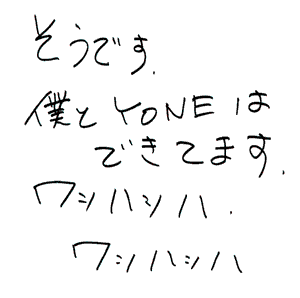 そうです.
僕とYONEは
できてます.
ワハハハハ.
ワハハハハ